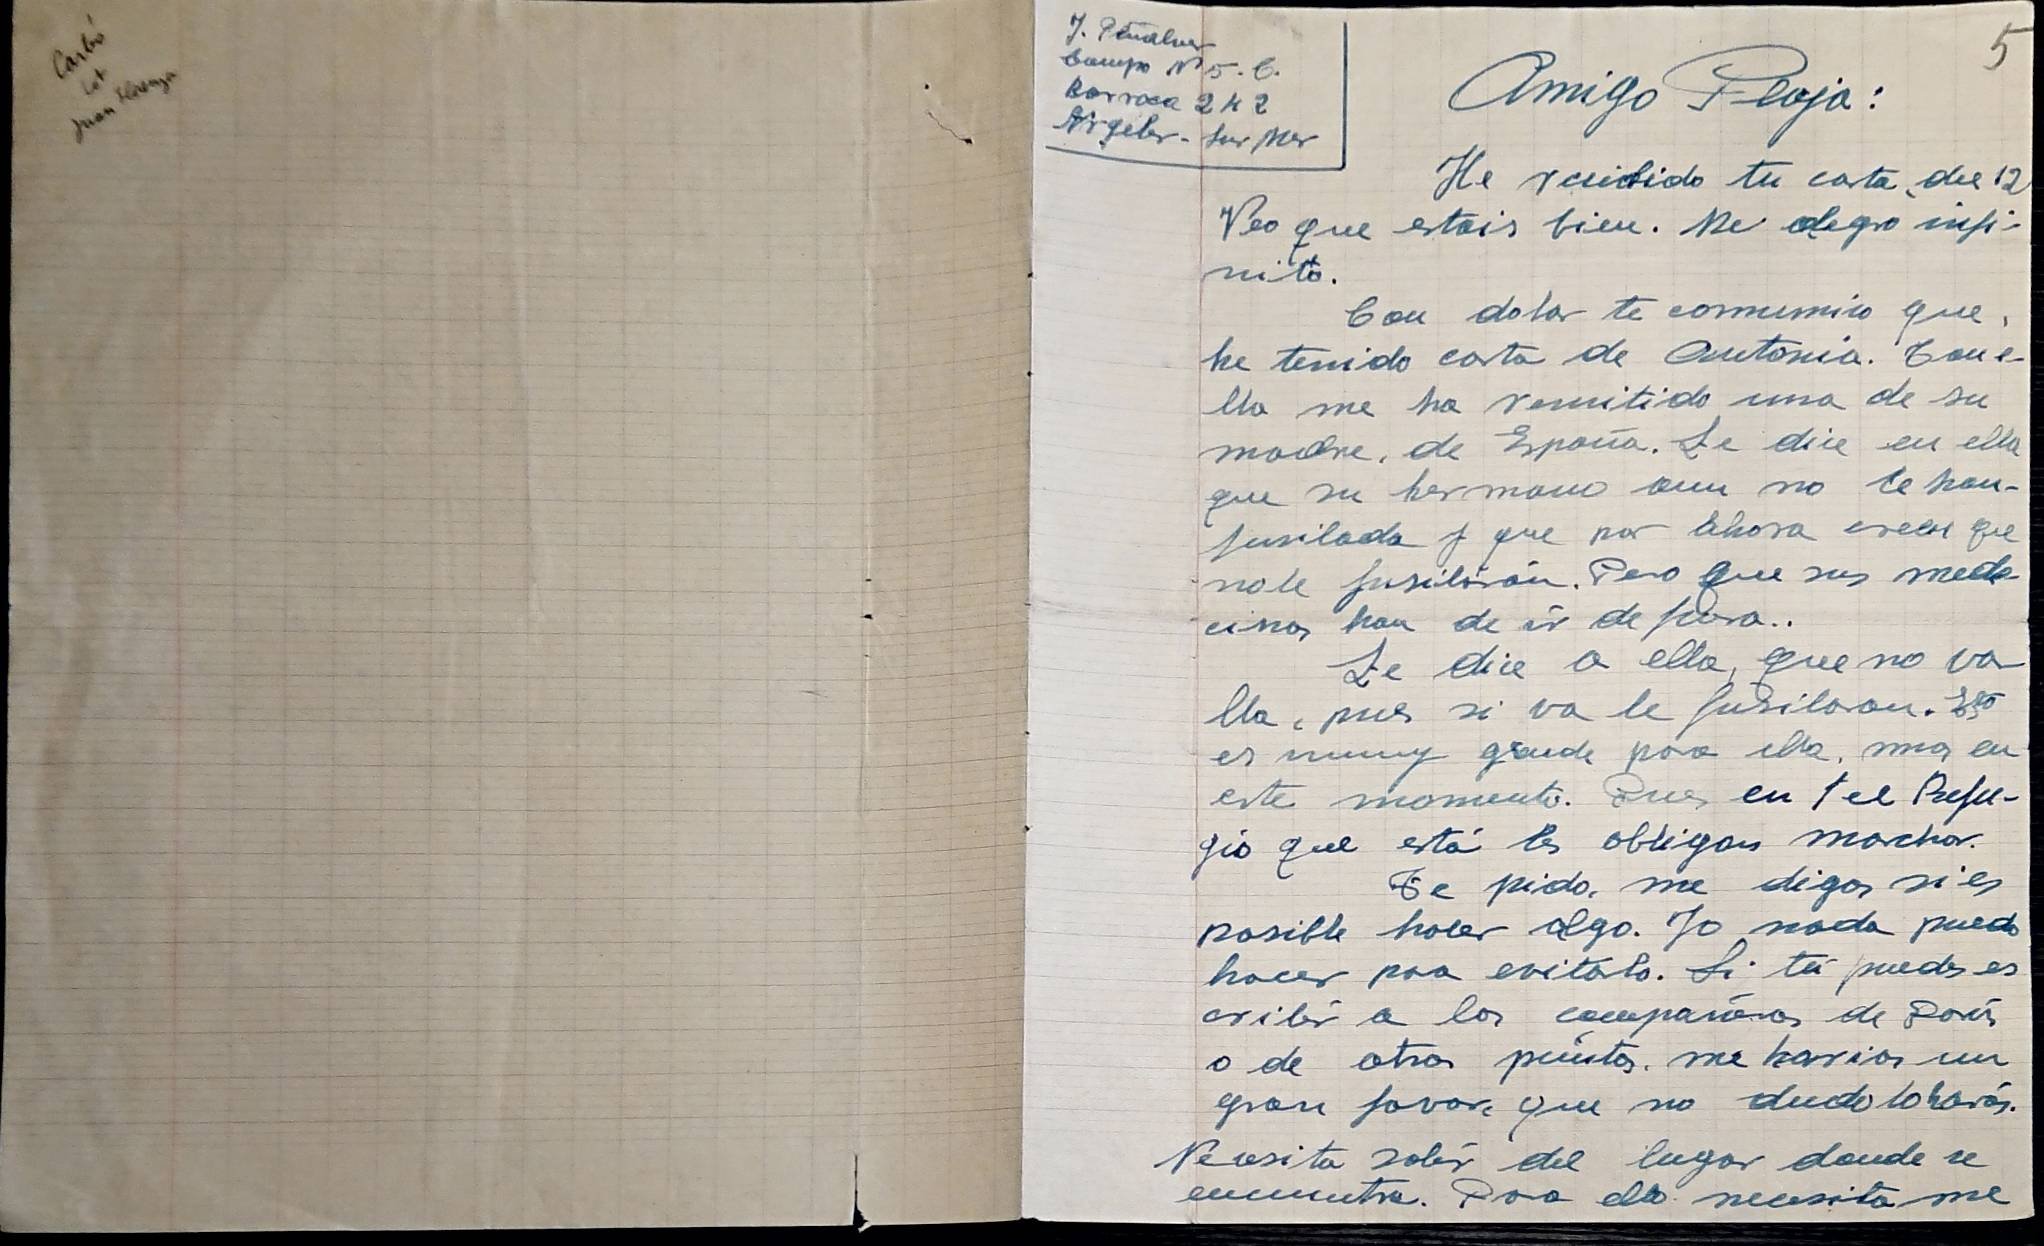 Carbó
Lot
Juan Florenza
J. Peñalver
Campo Nº 5. C.
Barraca 242
Argeles-sur Mer
5
Amigo Ploja:
He recibido tu carta, del 12
Veo que estais bien. Me alegro infi-
nito.
Con dolor te comunico que,
he tenido carta de Antonia. Con e-
lla me ha remitido una de su
madre, de España. Le dice en ella
que su hermano aun no le han-
fusilado y que por ahora creen que
no le fusilarán. Pero que sus
han de ir de fuera..
Le dice a ella, que no va-
lla, pues si va le fusilaran. Esto
es muy grande para ella, mas en
este momento. Pues en el Refu-
gio que está les obligan marchar.
Te pido, me digas si es
posible hacer algo. Yo nada puedo
hacer para evitarlo. Si tú puedes es
cribir a los compañeros de París
o de otros puntos, me harias un
gran favor, que no dudo lo harás.
Necesita salir del lugar donde se
encuentra. Para ello necesita me